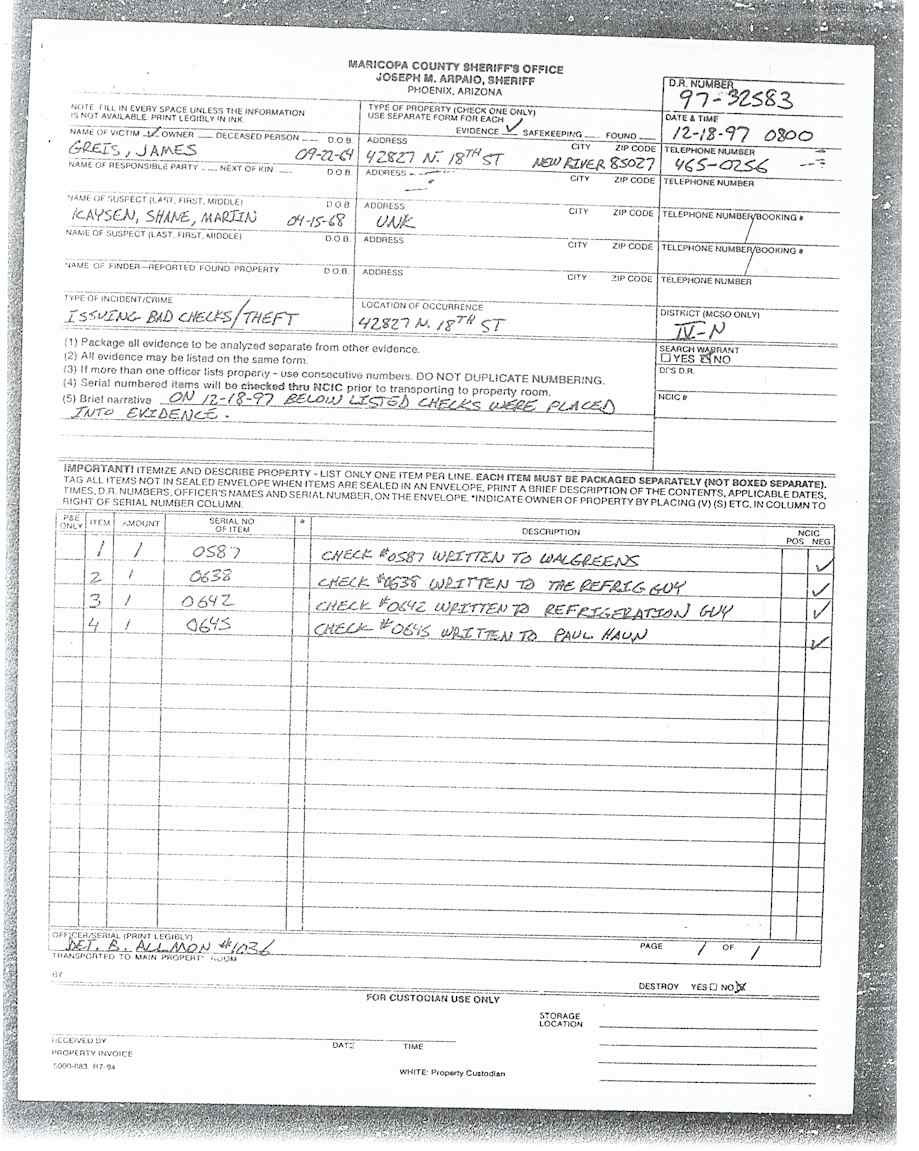 MARICOPA COUNTY SHERIFF'S OFFICE
JOSEPH M. ARPAIO, SHERIFF
PHOENIX, ARIZONA
D.R. NUMBER
97-32583
NOTE: FILL IN EVERY SPACE UNLESS THE INFORMATION
IS NOT AVAILABLE. PRINT LEGIBLY IN INK
TYPE OF PROPERTY (CHECK ONE ONLY)
USE SEPARATE FORM FOR EACH
EVIDENCE ✓ SAFEKEEPING ___ FOUND ___
DATE & TIME
12-18-97 0800
NAME OF VICTIM ✓ OWNER ___ DECEASED PERSON ___ D.O.B. ADDRESS CITY ZIP CODE TELEPHONE NUMBER
GREIS, JAMES 09-22-64 42827 N. 18TH ST NEW RIVER 85027 465-0256
NAME OF RESPONSIBLE PARTY ___ NEXT OF KIN ___ D.O.B. ADDRESS CITY ZIP CODE TELEPHONE NUMBER
NAME OF SUSPECT (LAST, FIRST, MIDDLE) D.O.B. ADDRESS CITY ZIP CODE TELEPHONE NUMBER/BOOKING #
KAYSEN, SHANE, MARTIN 04-15-68 UNK
NAME OF SUSPECT (LAST, FIRST, MIDDLE) D.O.B. ADDRESS CITY ZIP CODE TELEPHONE NUMBER/BOOKING #
NAME OF FINDER—REPORTED FOUND PROPERTY D.O.B. ADDRESS CITY ZIP CODE TELEPHONE NUMBER
TYPE OF INCIDENT/CRIME LOCATION OF OCCURRENCE DISTRICT (MCSO ONLY)
ISSUING BAD CHECKS/THEFT 42827 N. 18TH ST IV-N
(1) Package all evidence to be analyzed separate from other evidence.
(2) All evidence may be listed on the same form.
(3) If more than one officer lists property - use consecutive numbers. DO NOT DUPLICATE NUMBERING.
(4) Serial numbered items will be checked thru NCIC prior to transporting to property room.
(5) Brief narrative ON 12-18-97 BELOW LISTED CHECKS WERE PLACED
INTO EVIDENCE.
SEARCH WARRANT
☐ YES ☒ NO
DI'S D.R.
NCIC #
IMPORTANT! ITEMIZE AND DESCRIBE PROPERTY - LIST ONLY ONE ITEM PER LINE. EACH ITEM MUST BE PACKAGED SEPARATELY (NOT BOXED SEPARATE).
TAG ALL ITEMS NOT IN SEALED ENVELOPE WHEN ITEMS ARE SEALED IN AN ENVELOPE, PRINT A BRIEF DESCRIPTION OF THE CONTENTS, APPLICABLE DATES,
TIMES, D.R. NUMBERS, OFFICER'S NAMES AND SERIAL NUMBER, ON THE ENVELOPE. *INDICATE OWNER OF PROPERTY BY PLACING (V) (S) ETC. IN COLUMN TO
RIGHT OF SERIAL NUMBER COLUMN.
P&E ONLY ITEM AMOUNT SERIAL NO OF ITEM * DESCRIPTION NCIC POS NEG
1 1 0587 CHECK #0587 WRITTEN TO WALGREENS ✓
2 1 0638 CHECK #0638 WRITTEN TO THE REFRIG GUY ✓
3 1 0642 CHECK #0642 WRITTEN TO REFRIGERATION GUY ✓
4 1 0645 CHECK #0645 WRITTEN TO PAUL HAUN ✓
OFFICER/SERIAL (PRINT LEGIBLY)
DET. B. ALLMON #1036
PAGE 1 OF 1
TRANSPORTED TO MAIN PROPERTY ROOM
BY
DESTROY YES ☐ NO ☒
FOR CUSTODIAN USE ONLY
STORAGE
LOCATION
RECEIVED BY DATE TIME
PROPERTY INVOICE
5000-083 R7-94
WHITE: Property Custodian